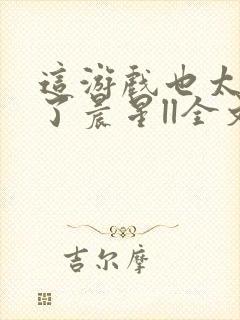 這游戲也太
了晨星||全文
吉尔摩